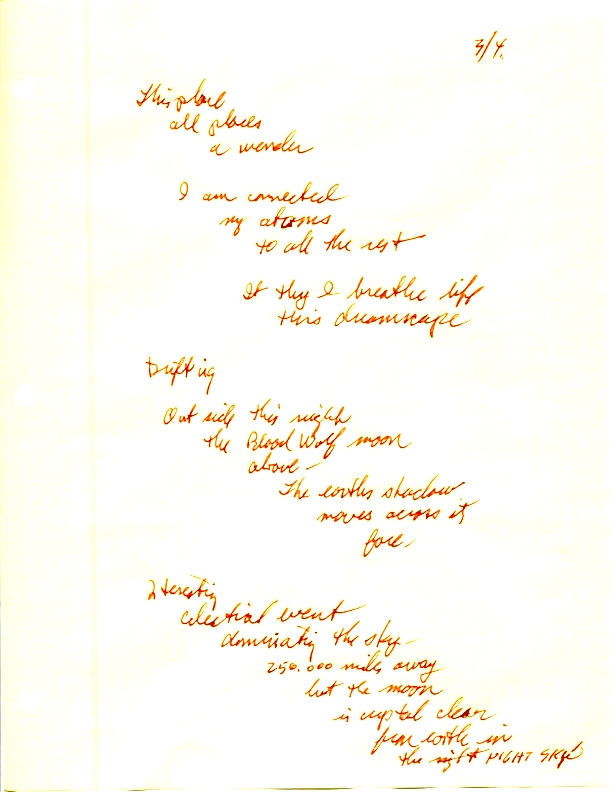 3/4.
This place
all places
a wonder
I am connected
my atoms
to all the rest
It they I breathe life
this dreamscape
Drifting
Out side this night
the Blood Wolf moon
above-
The earths shadow
moves across its
face.
Interesting
celestial event
dominating the sky-
250.000 miles away
but the moon
is crystal clear
from earth in
the night NIGHT SKY